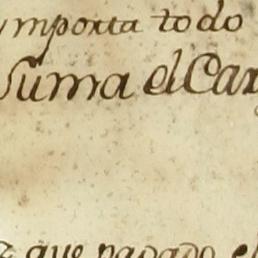 ymporta todo
Suma el Car
que pagado el